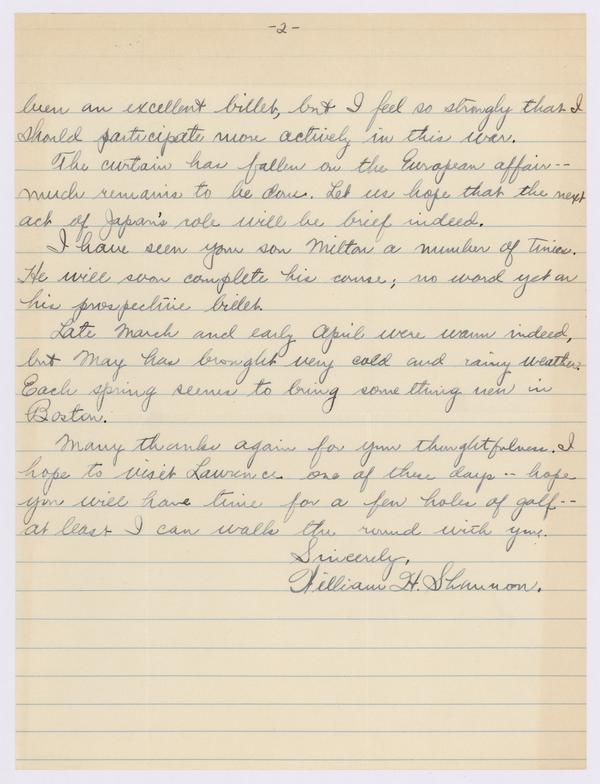 -2-
been an excellent billet, but I feel so strongly that I
should participate more actively in this war.
The curtain has fallen on the European affair--
much remains to be done. Let us hope that the next
act of Japan's role will be brief indeed.
I have seen your son Milton a number of times.
He will soon complete his course; no word yet on
his prospective billet.
Late March and early April were warm indeed,
but May has brought very cold and rainy weather.
Each spring seems to bring something new in
Boston.
Many thanks again for your thoughtfulness. I
hope to visit Lawrence one of these days -- hope
you will have time for a few holes of golf--
at least I can walk the round with you.
Sincerely,
William H. Shannon.